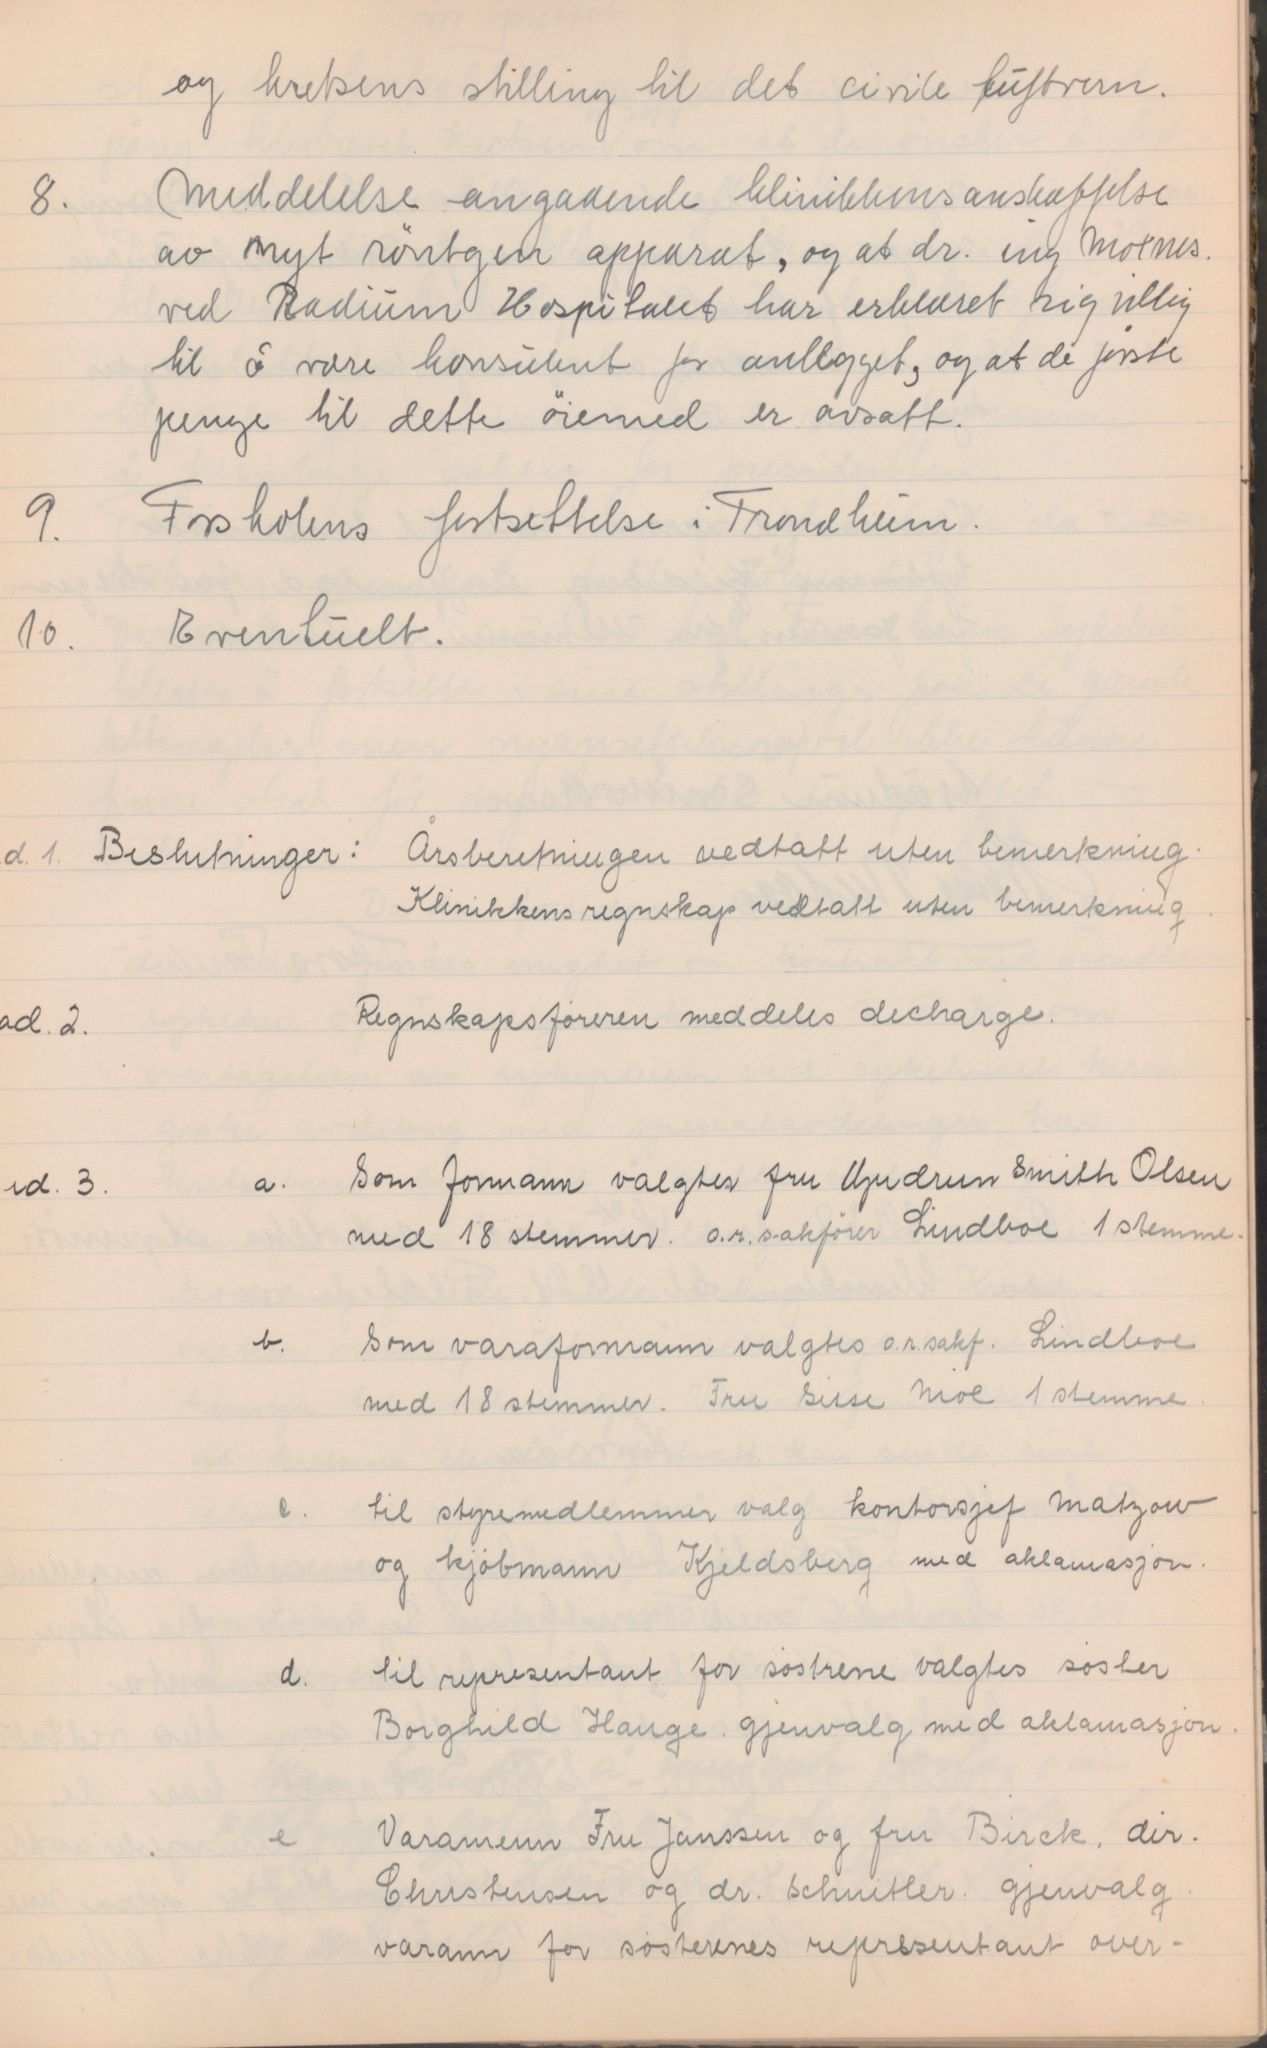 og kretsens stilling til det civile luftvern.
8. Meddelelse angaaende klinikkens anskaffelse
av nyt röntgen apparat, og at dr. ing Moxnes.
ved Radium Hospitalet har erklæret sig villig
til å være konsulent for anlegget, og at de første
penge til dette öiemed er avsatt.
9. Forskolens fortsettelse i Trondheim.
10. Eventuelt.
d. 1. Beslutninger: Årsberetningen vedtatt uten bemerkning.
Klinikkens regnskap vedtatt uten bemerkning.
ad. 2. Regnskapsføreren meddeles decharge.
ad. 3. a. Som formann valgtes fru Gudrun Smith Olsen
med 18 stemmer. o.r.sakfører Lindboe 1 stemme.
b. Som varaformann valgtes o.r.sakf. Lindboe
med 18 stemmer. Fru Sisse Moe 1 stemme.
c. til styremedlemmer valg kontorsjef Matzow
og kjøbmann Kjeldsberg med aklamasjon.
d. til representant for søstrene valgtes søster
Borghild Hauge. gjenvalg med aklamasjon.
e Varamenn Fru Janssen og fru Birck, dir.
Christensen og dr. Schnitler. gjenvalg.
varam for søsterenes representant over-